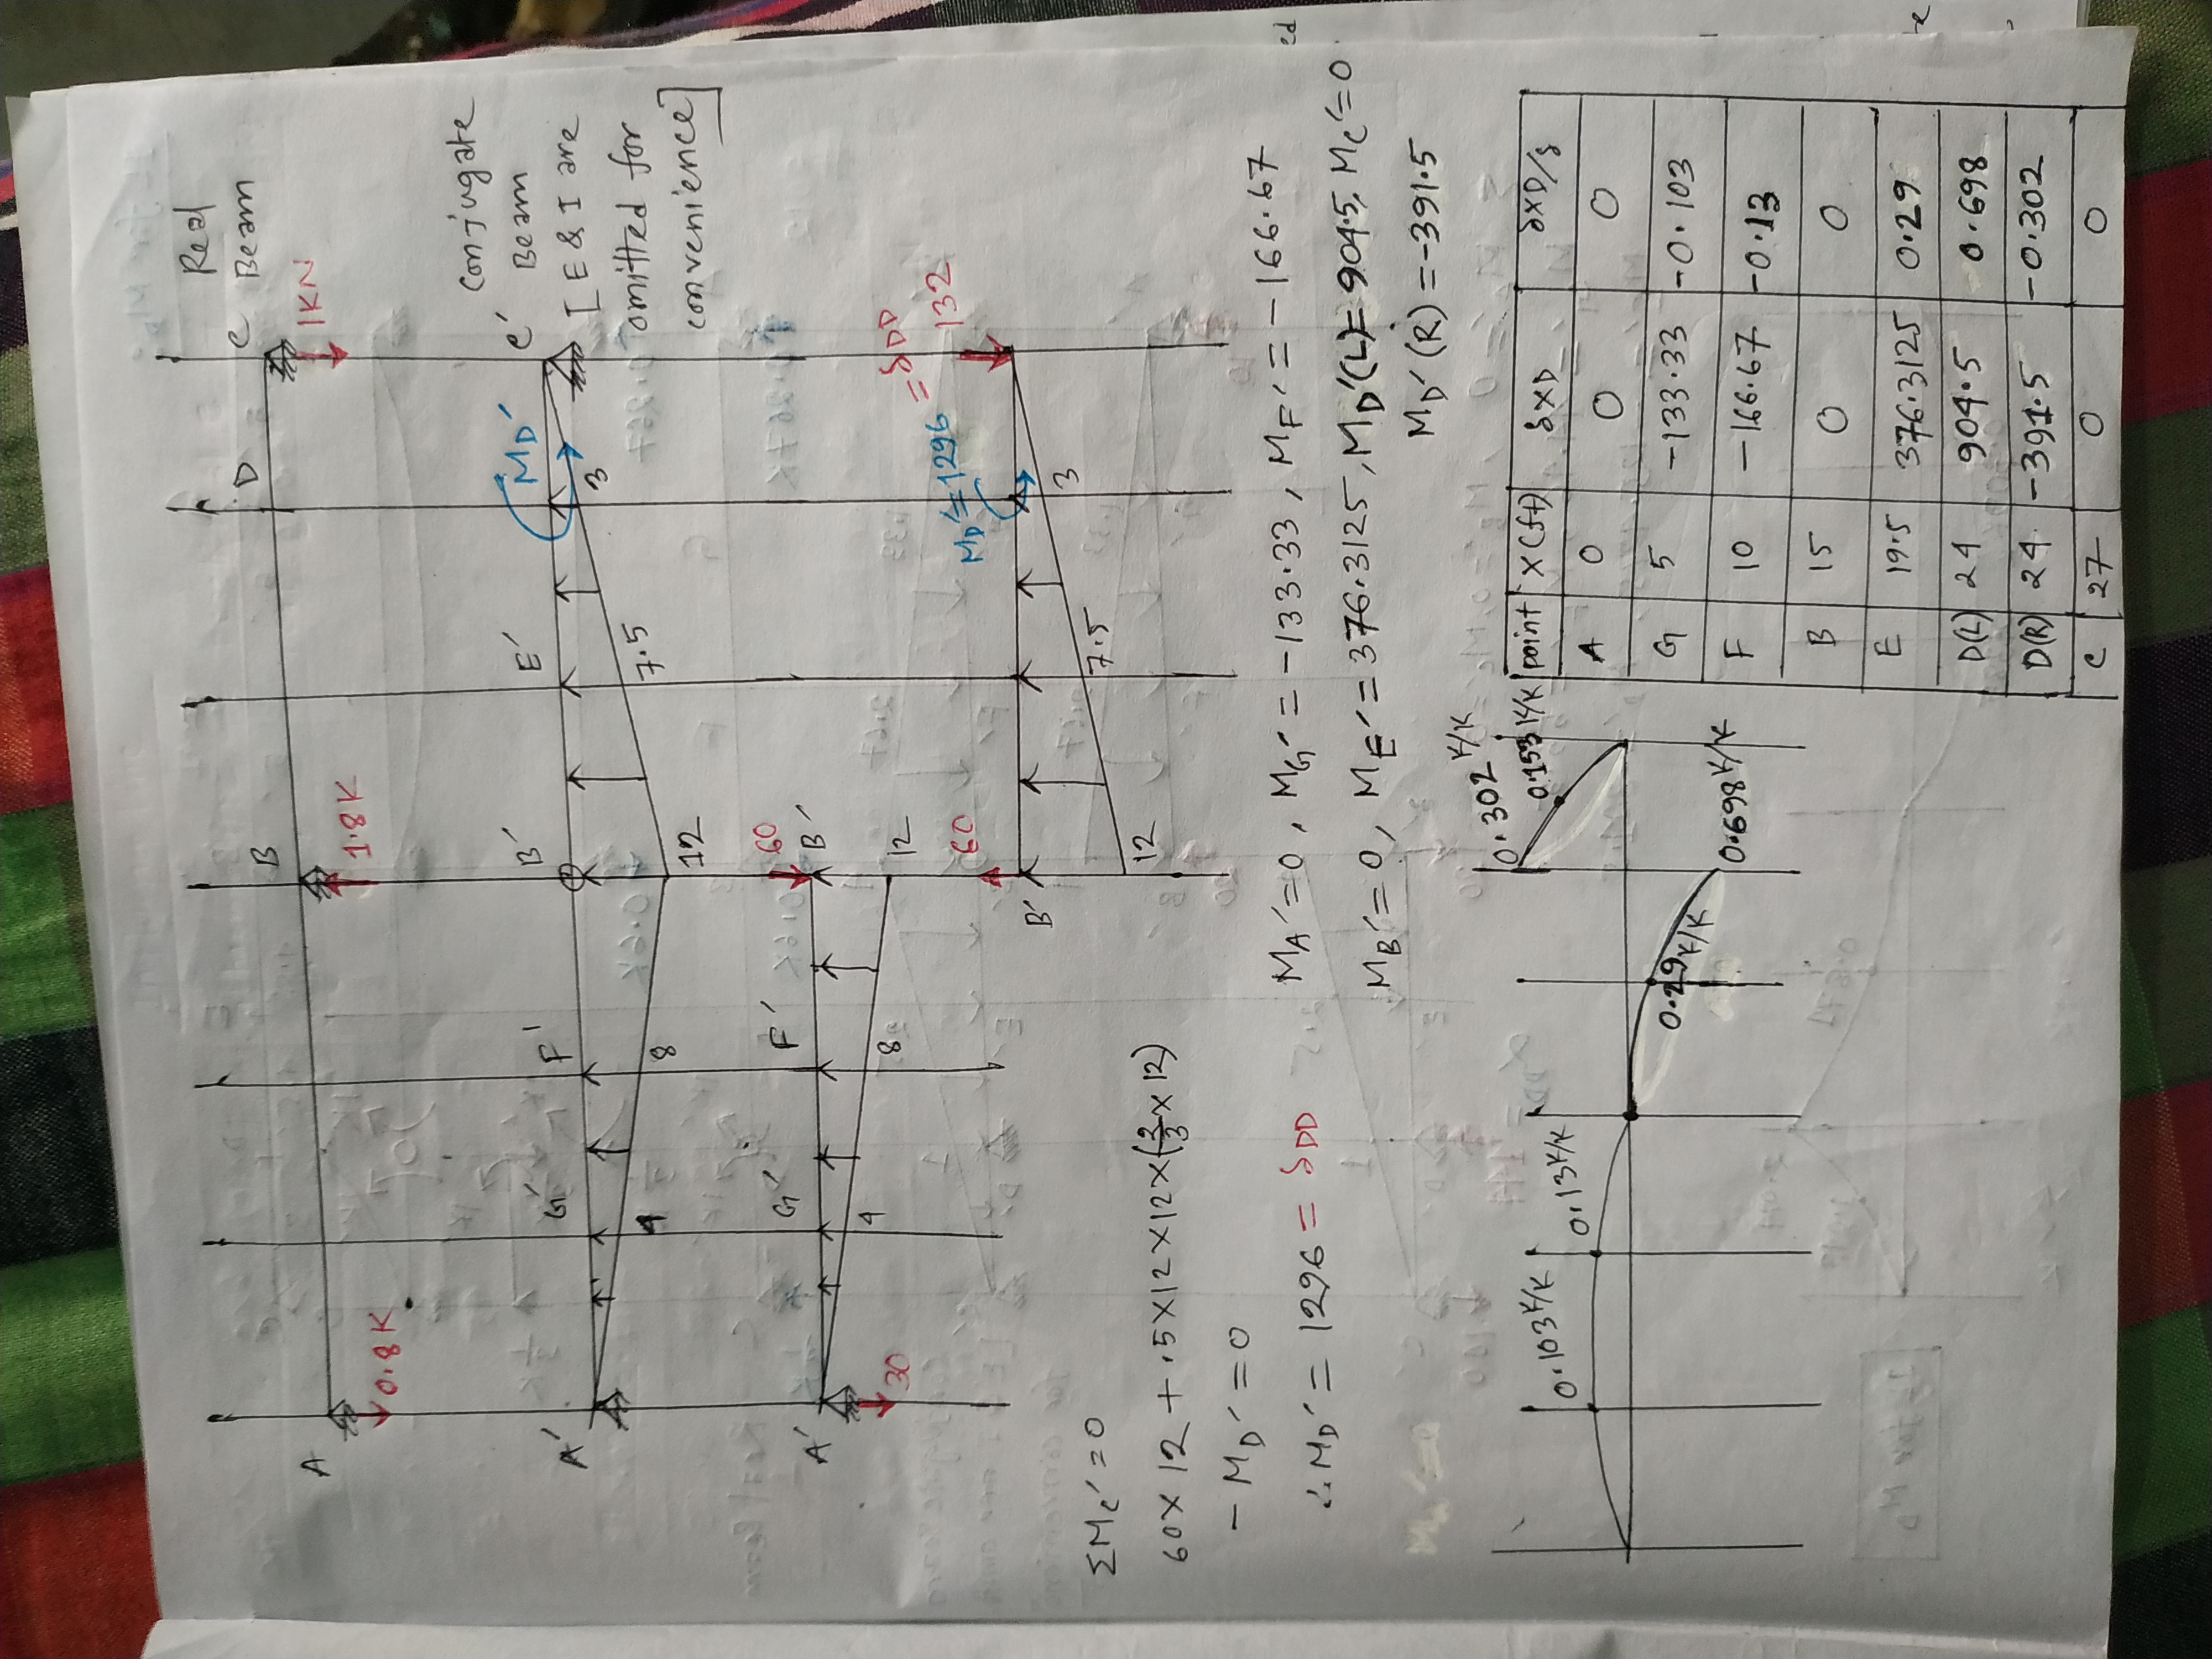 Real
Beam
A
B
D
C
0.8K
1.8K
1KN
Conjugate
Beam
[E & I are
omitted for
convenience]
A′
G′
F′
B′
E′
MD′
C′
4
8
12
7.5
3
A′
G′
F′
B′
60
30
4
8
12
60
MD′=1296
=δDD
132
B′
12
7.5
3
ΣMc′=0
60×12+.5×12×12×(2/3×12)
-MD′=0
∴MD′=1296=δDD
MA′=0, MG′=-133.33, MF′=-166.67
MB′=0, ME′=376.3125, MD′(L)=904.5, Mc′=0
MD′(R)=-391.5
0.103K/K
0.13K/K
0.29K/K
0.698K/K
0.302K/K
0.153K/K
point x(ft) δxD δxD/δ
A 0 0 0
G 5 -133.33 -0.103
F 10 -166.67 -0.13
B 15 0 0
E 19.5 376.3125 0.29
D(L) 24 904.5 0.698
D(R) 24 -391.5 -0.302
C 27 0 0